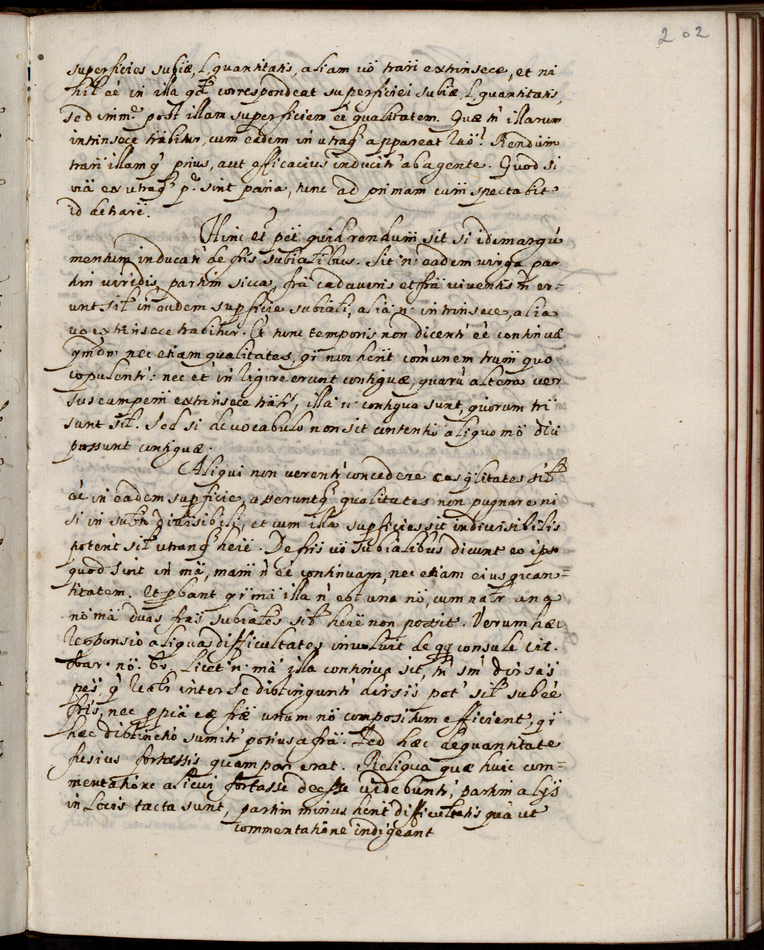 202
superficies subiæ, l, quantitatis, aliam vö trari extrinsece, et ni
hil eé in illa qd correspondeat superficiei subiæ, l, quantitatis,
sed imme. post illam superficiem eé qualitatem. Quæ tn' illarum
intrinsece trahitur, cum eadem in utraq; appareat raö? Rendum
trari illam q' prius, aut efficacius inducitr ab agente. Quod si
via ex utraq; pe. sint paria, tunc ad primam cum spectabit
id detrari.
Hinc et pet quid rendum sit si idem argu
mentum inducatr de fris subialibus. Sit n. eadem virga par
tim viridis, partim sicca, fra cadaveris et fra viventis tn er-
unt sit in eadem supficie subiali, alia n. intrinsece, alia
vo extrinsece trahitur. Et hinc temporis non dicentr eé continuæ
qmdm nec etiam qualitates, qi non herit comunem trum quo
copulentr: nec et in rigore erunt contiguæ, quaru altera ver
sus eumpem extrinsece trahr, illa n. contigua sunt, quorum tri
sunt sit. Sed si de vocabulo non sit contentio aliquo mo dici
possunt contiguæ.
Aliqui non verentr concedere eas qlitates sit
eé in eadem supficie, asseruntq; qualitates non pugnare ni
si in subto divisibili, et cum illa supficies sit indivisibilis
potent sit utranq; here. De fris vö subialibus dicunt eo ipso
quod sint in mä, mam n' eé continuam, nec etiam eius quan=
titatem. Et probant qi mä illa n' est una nö, cum natr una
nö mä duas fras subiates sit here non possit. Verum hæc
responsio aliquas difficultates involvit de qq consule cit.
Licet n. mä illa continua sit, tn sm' diversas
pes, q' realr inter se distinguntr diversis pot' sit subeé
fris, nec propia eæ fræ unum nö compositum efficient, qi
hæc distinctio sumitr potius a fra. Sed hæc de quantitate
fusius fortassis quam par erat. Reliqua quæ huic com-
mentatione alicui fortasse deesse videbuntr, partim alys
in locis tacta sunt, partim minus hent difficultatis quä ut
commentatione indigeant